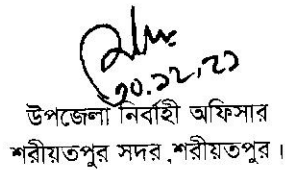 ৩০.১২.২১
উপজেলা নির্বাহী অফিসার
শরীয়তপুর সদর ,শরীয়তপুর ।